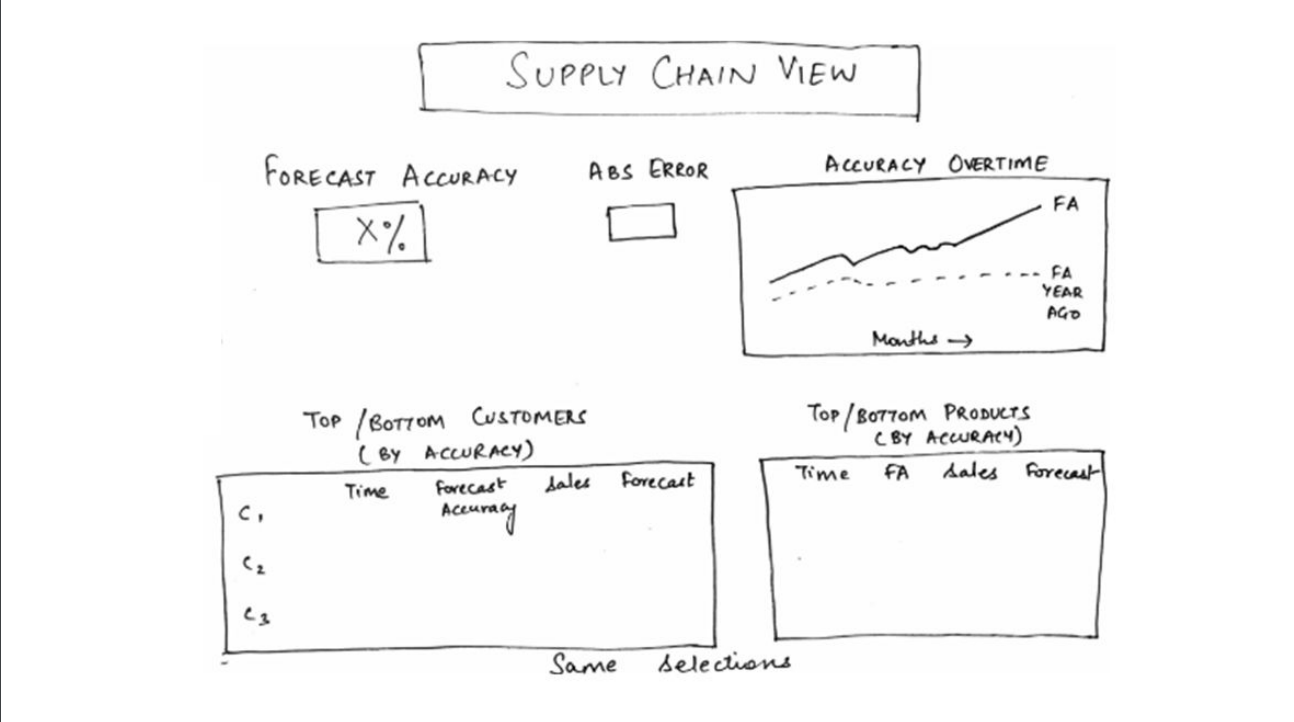 SUPPLY CHAIN VIEW
FORECAST ACCURACY
X%
ABS ERROR
ACCURACY OVERTIME
FA
FA
YEAR
AGO
Months →
TOP /BOTTOM CUSTOMERS
(BY ACCURACY)
Time Forecast Sales Forecast
Accuracy
C1
C2
C3
TOP/BOTTOM PRODUCTS
(BY ACCURACY)
Time FA Sales Forecast
Same selections